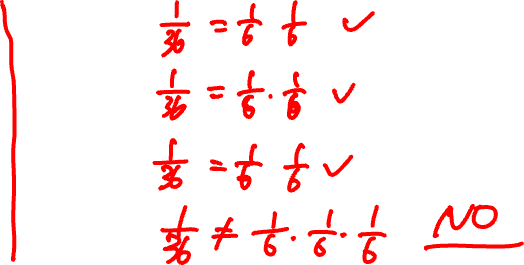 1/36 = 1/6 1/6 ✓
1/36 = 1/6 · 1/6 ✓
1/36 = 1/6 1/6 ✓
1/36 ≠ 1/6 · 1/6 · 1/6 NO